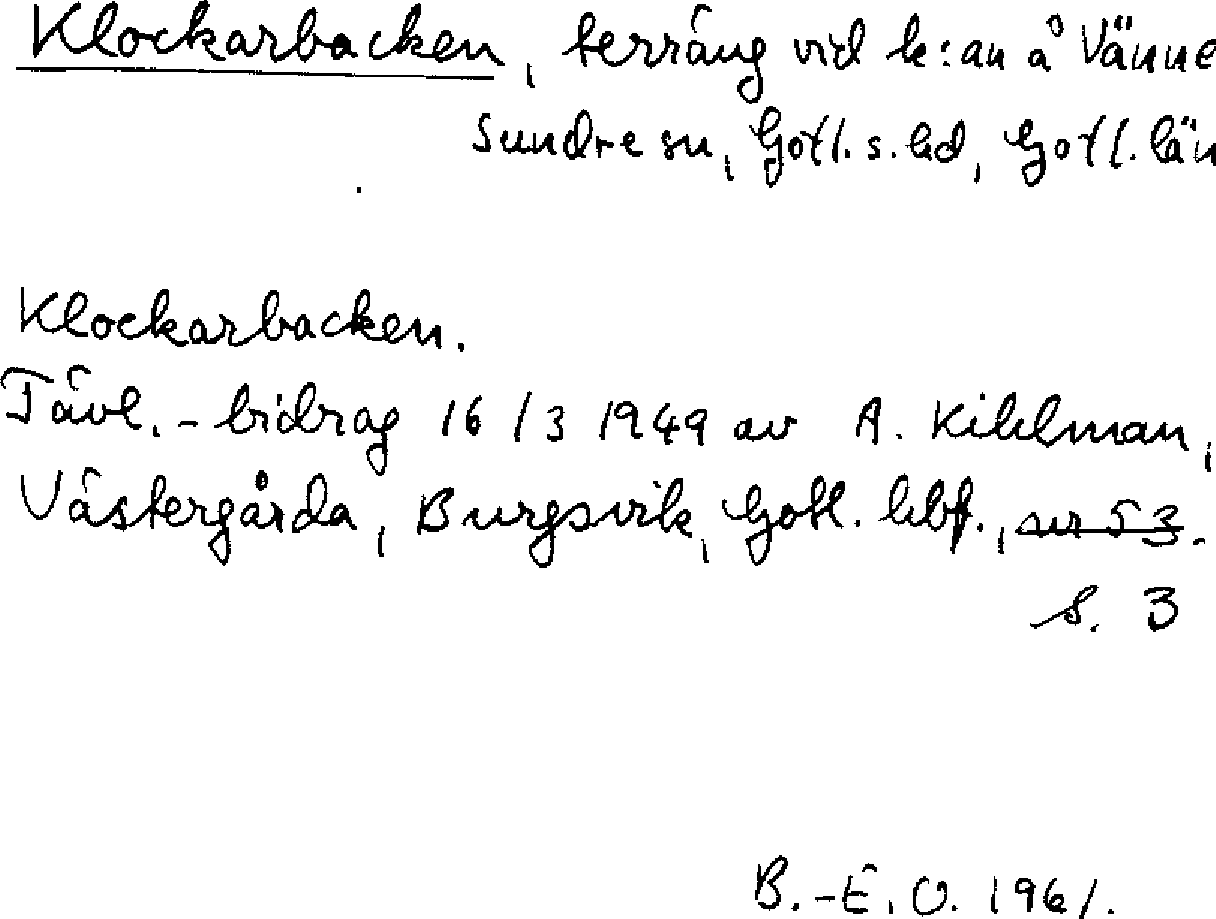 Klockarbacken, terräng vid k:an å Vänne
Sundre sn, Gotl. s. hd, Gotl. län
Klockarbacken.
Tävl.-bidrag 16/3 1949 av A. Kihlman,
Västergårda, Burgsvik, Gotl. hbf., nr 53.
s. 3
B.-E. O. 1961.